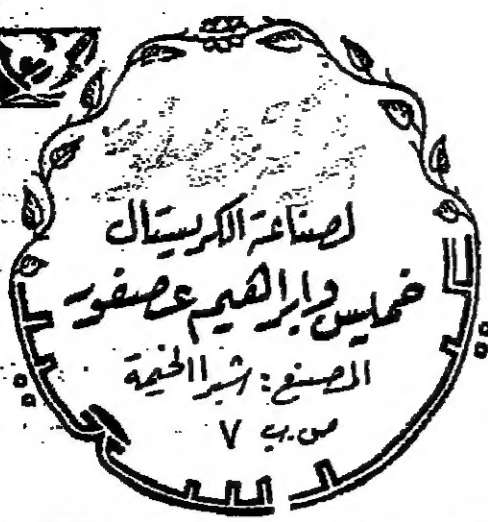 لصناعة الكريستال
خميس وإبراهيم عصفور
المصنع : شبرا الخيمة
ص . ب ٧